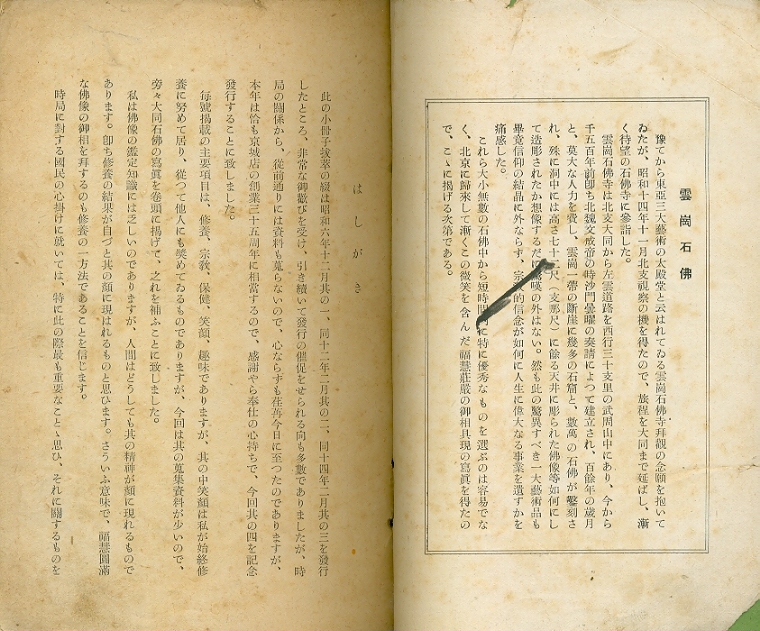 雲崗石佛
豫てから東亞三大藝術の大殿堂と云はれてゐる雲崗石佛寺拜觀の念願を抱いて
ゐたが、昭和十四年十一月北支視察の機を得たので、旅程を大同まで延ばし、漸
く待望の石佛寺に參詣した。
雲崗石佛寺は北支大同から左雲道路を西行三十支里の武周山中にあり、今から
千五百年前卽ち北魏文成帝の時沙門曇曜の奏請によつて建立され、百餘年の歲月
と、莫大な人力を費し、雲崗一帶の斷崖に幾多の石窟と、數萬の石佛が鑿刻さ
れ、殊に洞中には高さ七十二尺(支那尺)に餘る天井に彫られた佛像等如何にし
て造彫されたか想像するだに驚嘆の外はない。然も此の驚異すべき一大藝術品も
畢竟信仰の結晶に外ならず、宗教的信念が如何に人生に偉大なる事業を遺すかを
痛感した。
これら大小無數の石佛中から短時間内に特に優秀なものを選ぶのは容易でな
く、北京に歸來して漸くこの微笑を含んだ福慧莊嚴の御相具現の寫眞を得たの
で、こゝに揭げる次第である。
はしがき
此の小冊子拔萃の綴は昭和六年十二月其の一、同十二年二月其の二、同十四年二月其の三を發行
したところ、非常な御歡びを受け、引き續いて發行の催促をせられる向も多數でありましたが、時
局の關係から、從前通りには資料も蒐らないので、心ならずも荏苒今日に至つたのでありますが、
本年は恰も京城店の創業三十五周年に相當するので、感謝やら奉仕の心持ちで、今回其の四を記念
發行することに致しました。
每號揭載の主要項目は、修養、宗敎、保健、笑顏、趣味でありますが、其の中笑顏は私が始終修
養に努めて居り、從つて他人にも奬めてゐるものでありますが、今回は其の蒐集資料が少いので、
旁々大同石佛の寫眞を卷頭に揭げて、之れを補ふことに致しました。
私は佛像の鑑定知識には乏しいのでありますが、人間はどうしても其の精神が顏に現れるもので
あります。卽ち修養の結果が自づと其の顏に現はれるものと思ひます。さういふ意味で、福慧圓滿
な佛像の御相を拜するのも修養の一方法であることを信じます。
時局に對する國民の心掛けに就いては、特に此の際最も重要なことゝ思ひ、それに關するものを